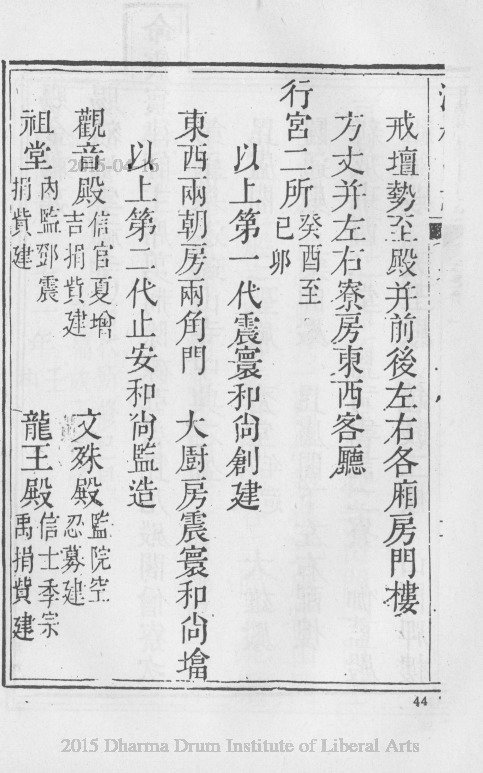 戒壇勢至殿并前後左右各廂房門樓
方丈并左右寮房東西客廳
行宮二所癸酉至己卯
以上第一代震寰和尚創建
東西兩朝房兩角門　大厨房震寰和尚墖
以上第二代止安和尚監造
觀音殿信官夏增吉捐貲建　文殊殿監院空忍募建
祖堂內監鄧震捐貲建　龍王殿信士季宗禹捐貲建
44
2015-04-16
2015 Dharma Drum Institute of Liberal Arts